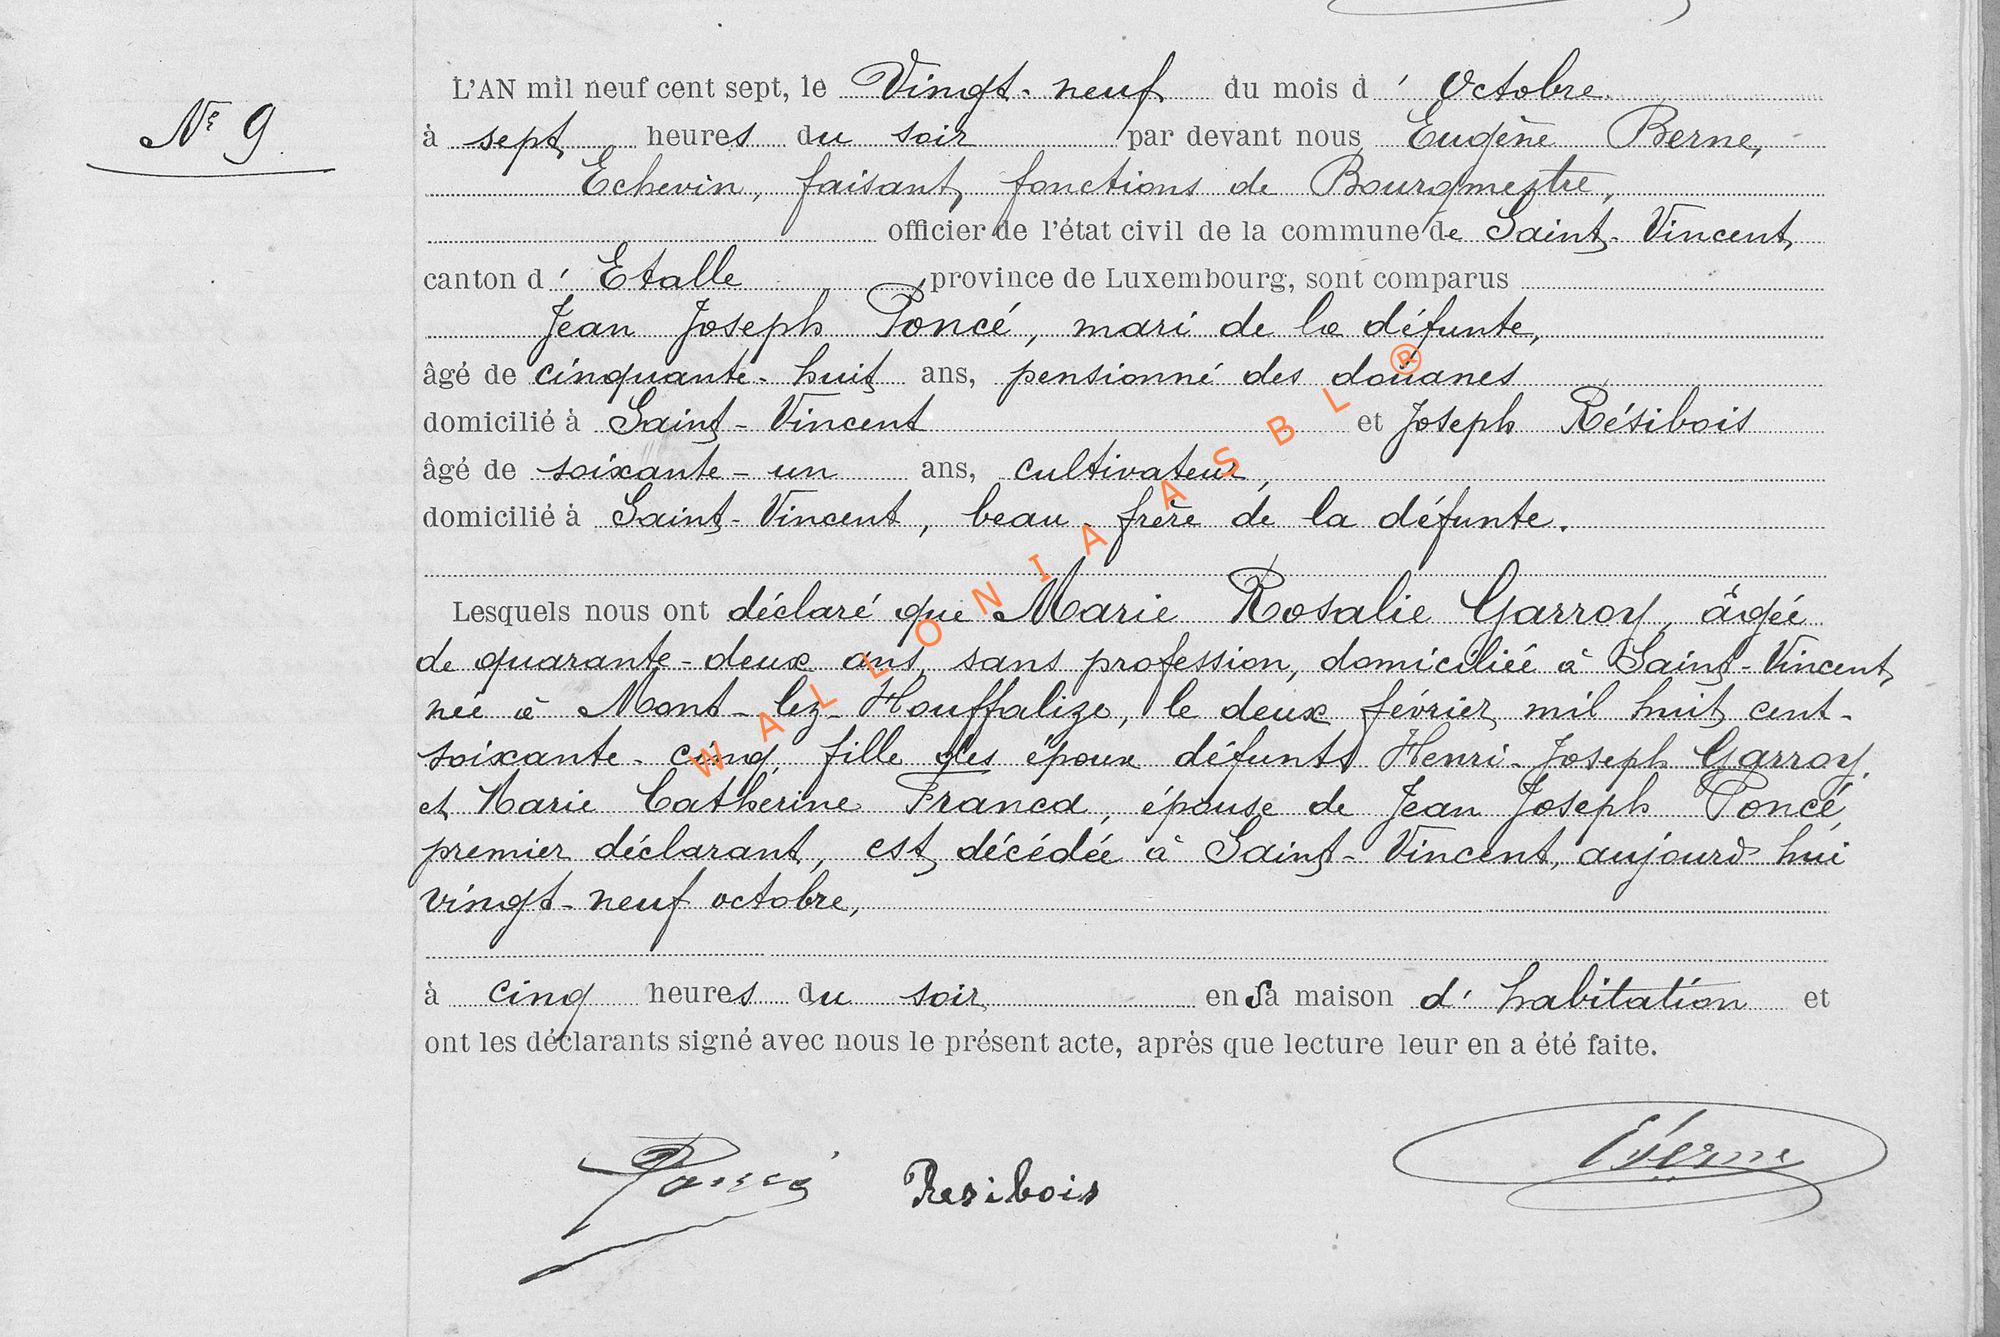 L'AN mil neuf cent sept, le Vingt-neuf du mois d' Octobre
N° 9
à sept heures du soir par devant nous Eugène Berne,
Echevin, faisant fonctions de Bourgmestre,
officier de l'état civil de la commune de Saint-Vincent
canton d' Etalle province de Luxembourg, sont comparus
Jean Joseph Poncé, mari de la défunte,
âgé de cinquante-huit ans, pensionné des douanes
domicilié à Saint-Vincent et Joseph Résibois
âgé de soixante-un ans, cultivateur,
domicilié à Saint-Vincent, beau-frère de la défunte.
Lesquels nous ont déclaré que Marie Rosalie Garroy, âgée
de quarante-deux ans, sans profession, domiciliée à Saint-Vincent,
née à Mont-lez-Houffalize, le deux février mil huit cent-
soixante-cinq, fille des époux défunts Henri-Joseph Garroy,
et Marie Catherine Francq, épouse de Jean Joseph Poncé,
premier déclarant, est décédée à Saint-Vincent, aujourd'hui
vingt-neuf octobre,
à cinq heures du soir en sa maison d'habitation et
ont les déclarants signé avec nous le présent acte, après que lecture leur en a été faite.
Poncé Resibois EBerne
WALLONIA ASBL ®